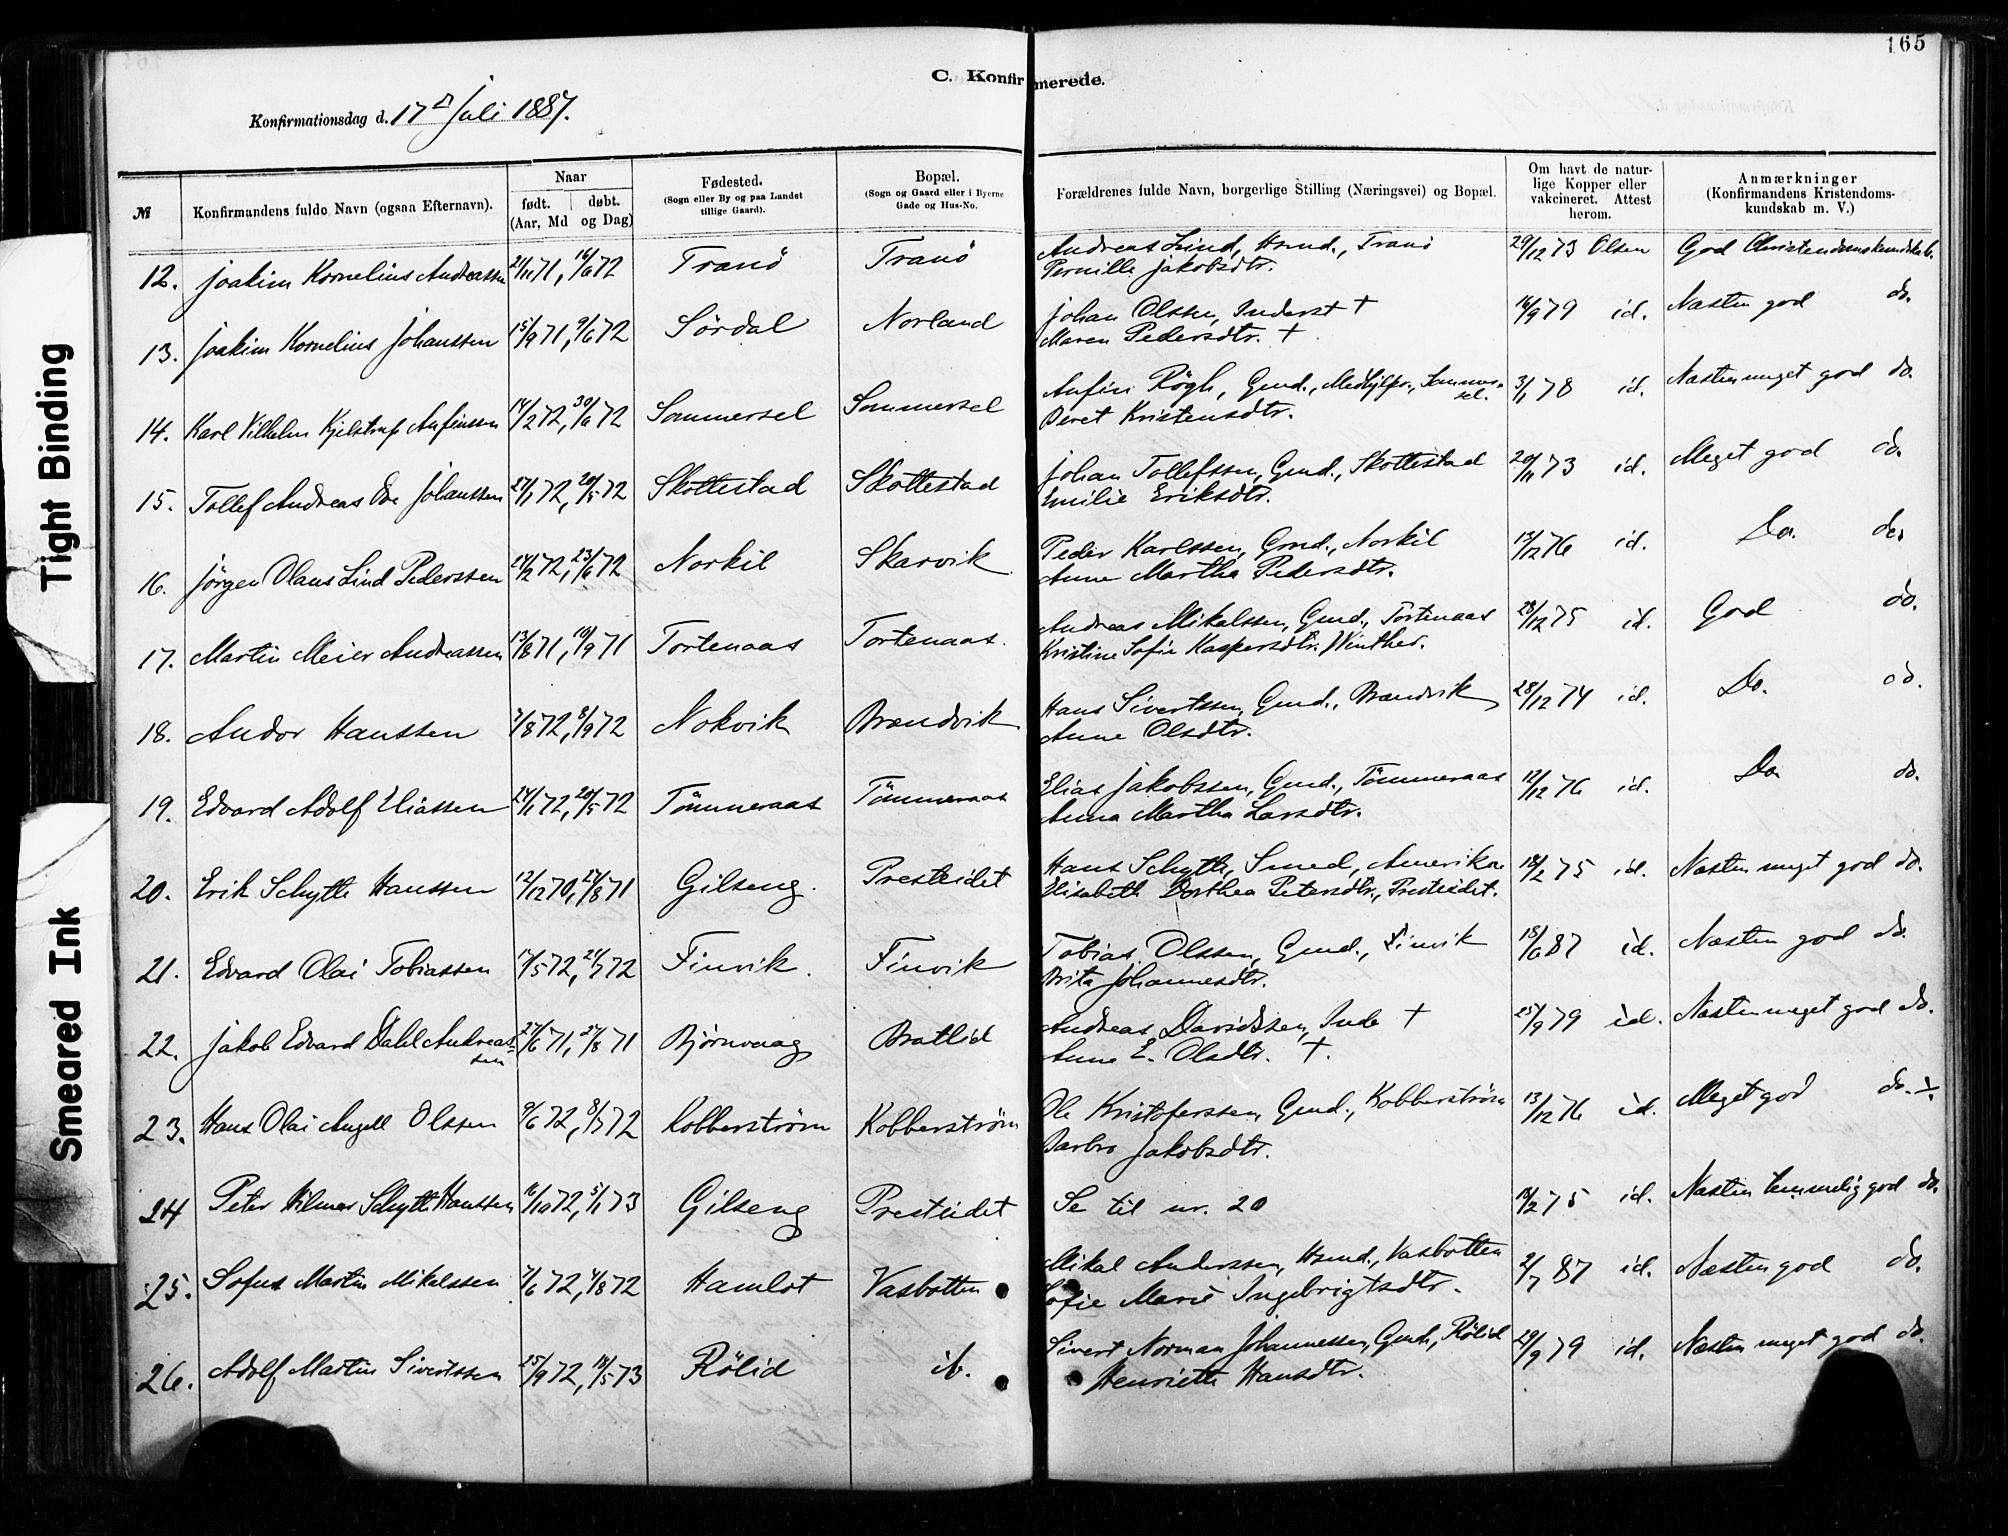 165
C. Konfirmerede.
Konfirmationsdag d. 17de Juli 1887.
№
Konfirmandens fulde Navn (ogsaa Efternavn).
Naar
født. (Aar, Md
døbt. og Dag)
Fødested.
(Sogn eller By og paa Landet
tillige Gaard).
Bopæl.
(Sogn og Gaard eller i Byerne
Gade og Hus-No.
Forældrenes fulde Navn, borgerlige Stilling (Næringsvei) og Bopæl.
Om havt de natur-
lige Kopper eller
vakcineret. Attest
herom.
Anmærkninger
(Konfirmandens Kristendoms-
kundskab m. V.)
12. Joakim Kornelius Andreassen 21/11 71, 16/6 72 Tranö Tranö Andreas Lind, Hsmd., Tranö 29/12 73 Olsen God Christendomskundskab.
Pernille Jakobsdtr.
13. Joakim Kornelius Johanssen 15/9 71, 9/6 72 Sördal Norland Johan Olssen, Inderst † 16/9 79 id. Næsten god do.
Maren Pedersdtr. †
14. Karl Vilhelm Kjelstrup Anfinssen 14/2 72, 30/6 72 Sommersel Sommersel Anfin Rögh, Gmd., Medhjelper, Sommer- 3/1 78 id. Næsten meget god do.
sel.
Beret Kristensdtr.
15. Tollef Andreas Ove Johanssen 27/1 72, 20/5 72 Skottestad Skottestad Johan Tollefssen, Gmd., Skottestad 20/11 73 id. Meget god do.
Emilie Eriksdtr.
16. Jörgen Olaus Lind Pederssen 24/2 72, 23/6 72 Norkil Skarvik Peder Karlssen, Gmd., Norkil 13/12 76 id. Do. do.
Anne Martha Pedersdtr.
17. Martin Meier Andreassen 13/8 71, 10/9 71 Tortenaas Tortenaas. Andreas Mikalssen, Gmd., Tortenaas 28/12 75 id. God do.
Kristine Sofie Kaspersdtr. Winther.
18. Andor Hanssen 7/8 72, 8/9 72 Nokvik Brændvik Hans Sivertssen, Gmd., Brændvik 28/12 74 id. Do. do.
Anne Olsdtr.
19. Edvard Adolf Eliassen 24/1 72, 20/5 72 Tömmeraas Tömmeraas Elias Jakobssen, Gmd., Tömmeraas 12/12 76 id. Do. do.
Anna Martha Larsdtr.
20. Erik Schytte Hanssen 12/12 70, 27/8 71 Gilseng. Presteidet Hans Schytte, Smed, Amerika 18/2 75 id. Næsten meget god do.
Elisabeth Dorthea Petersdtr., Presteidet.
21. Edvard Olai Tobiassen 17/5 72, 21/7 72 Finvik. Finvik Tobias Olssen, Gmd., Finvik 18/6 87 id. Næsten god do.
Brita Johannesdtr.
22. Jakob Edvard Dahl Andreas-
sen 27/6 71, 27/8 71 Björnvaag Bratlid Andreas Davidssen, Inde † 25/9 79 id. Næsten meget god do.
Anne E. Olsdtr. †.
23. Hans Olai Angell Olssen 9/6 72, 8/7 72 Kobberström Kobberström Ole Kristoferssen, Gmd., Kobberström 13/12 76 id. Meget god do.
Barbro Jakobsdtr.
24 Peter Hilmar Schytte Hanssen 16/10 72, 5/1 73 Gilseng Presteidet Se til nr. 20 18/2 75 id. Næsten temmelig god do.
25. Sofus Martin Mikalssen 7/6 72, 4/8 72 Hamlot Vasbotten Mikal Anderssen, Hsmd., Vasbotten 2/7 87 id. Næsten god do.
Sofie Marie Ingebrigtsdtr.
26. Adolf Martin Sivertssen 25/9 72, 18/5 73 Rölid ib. Sivert Norman Johannessen, Gmd., Rölid 29/9 79 id. Næsten meget god do.
Henriette Hansdtr.
Tight Binding
Smeared Ink